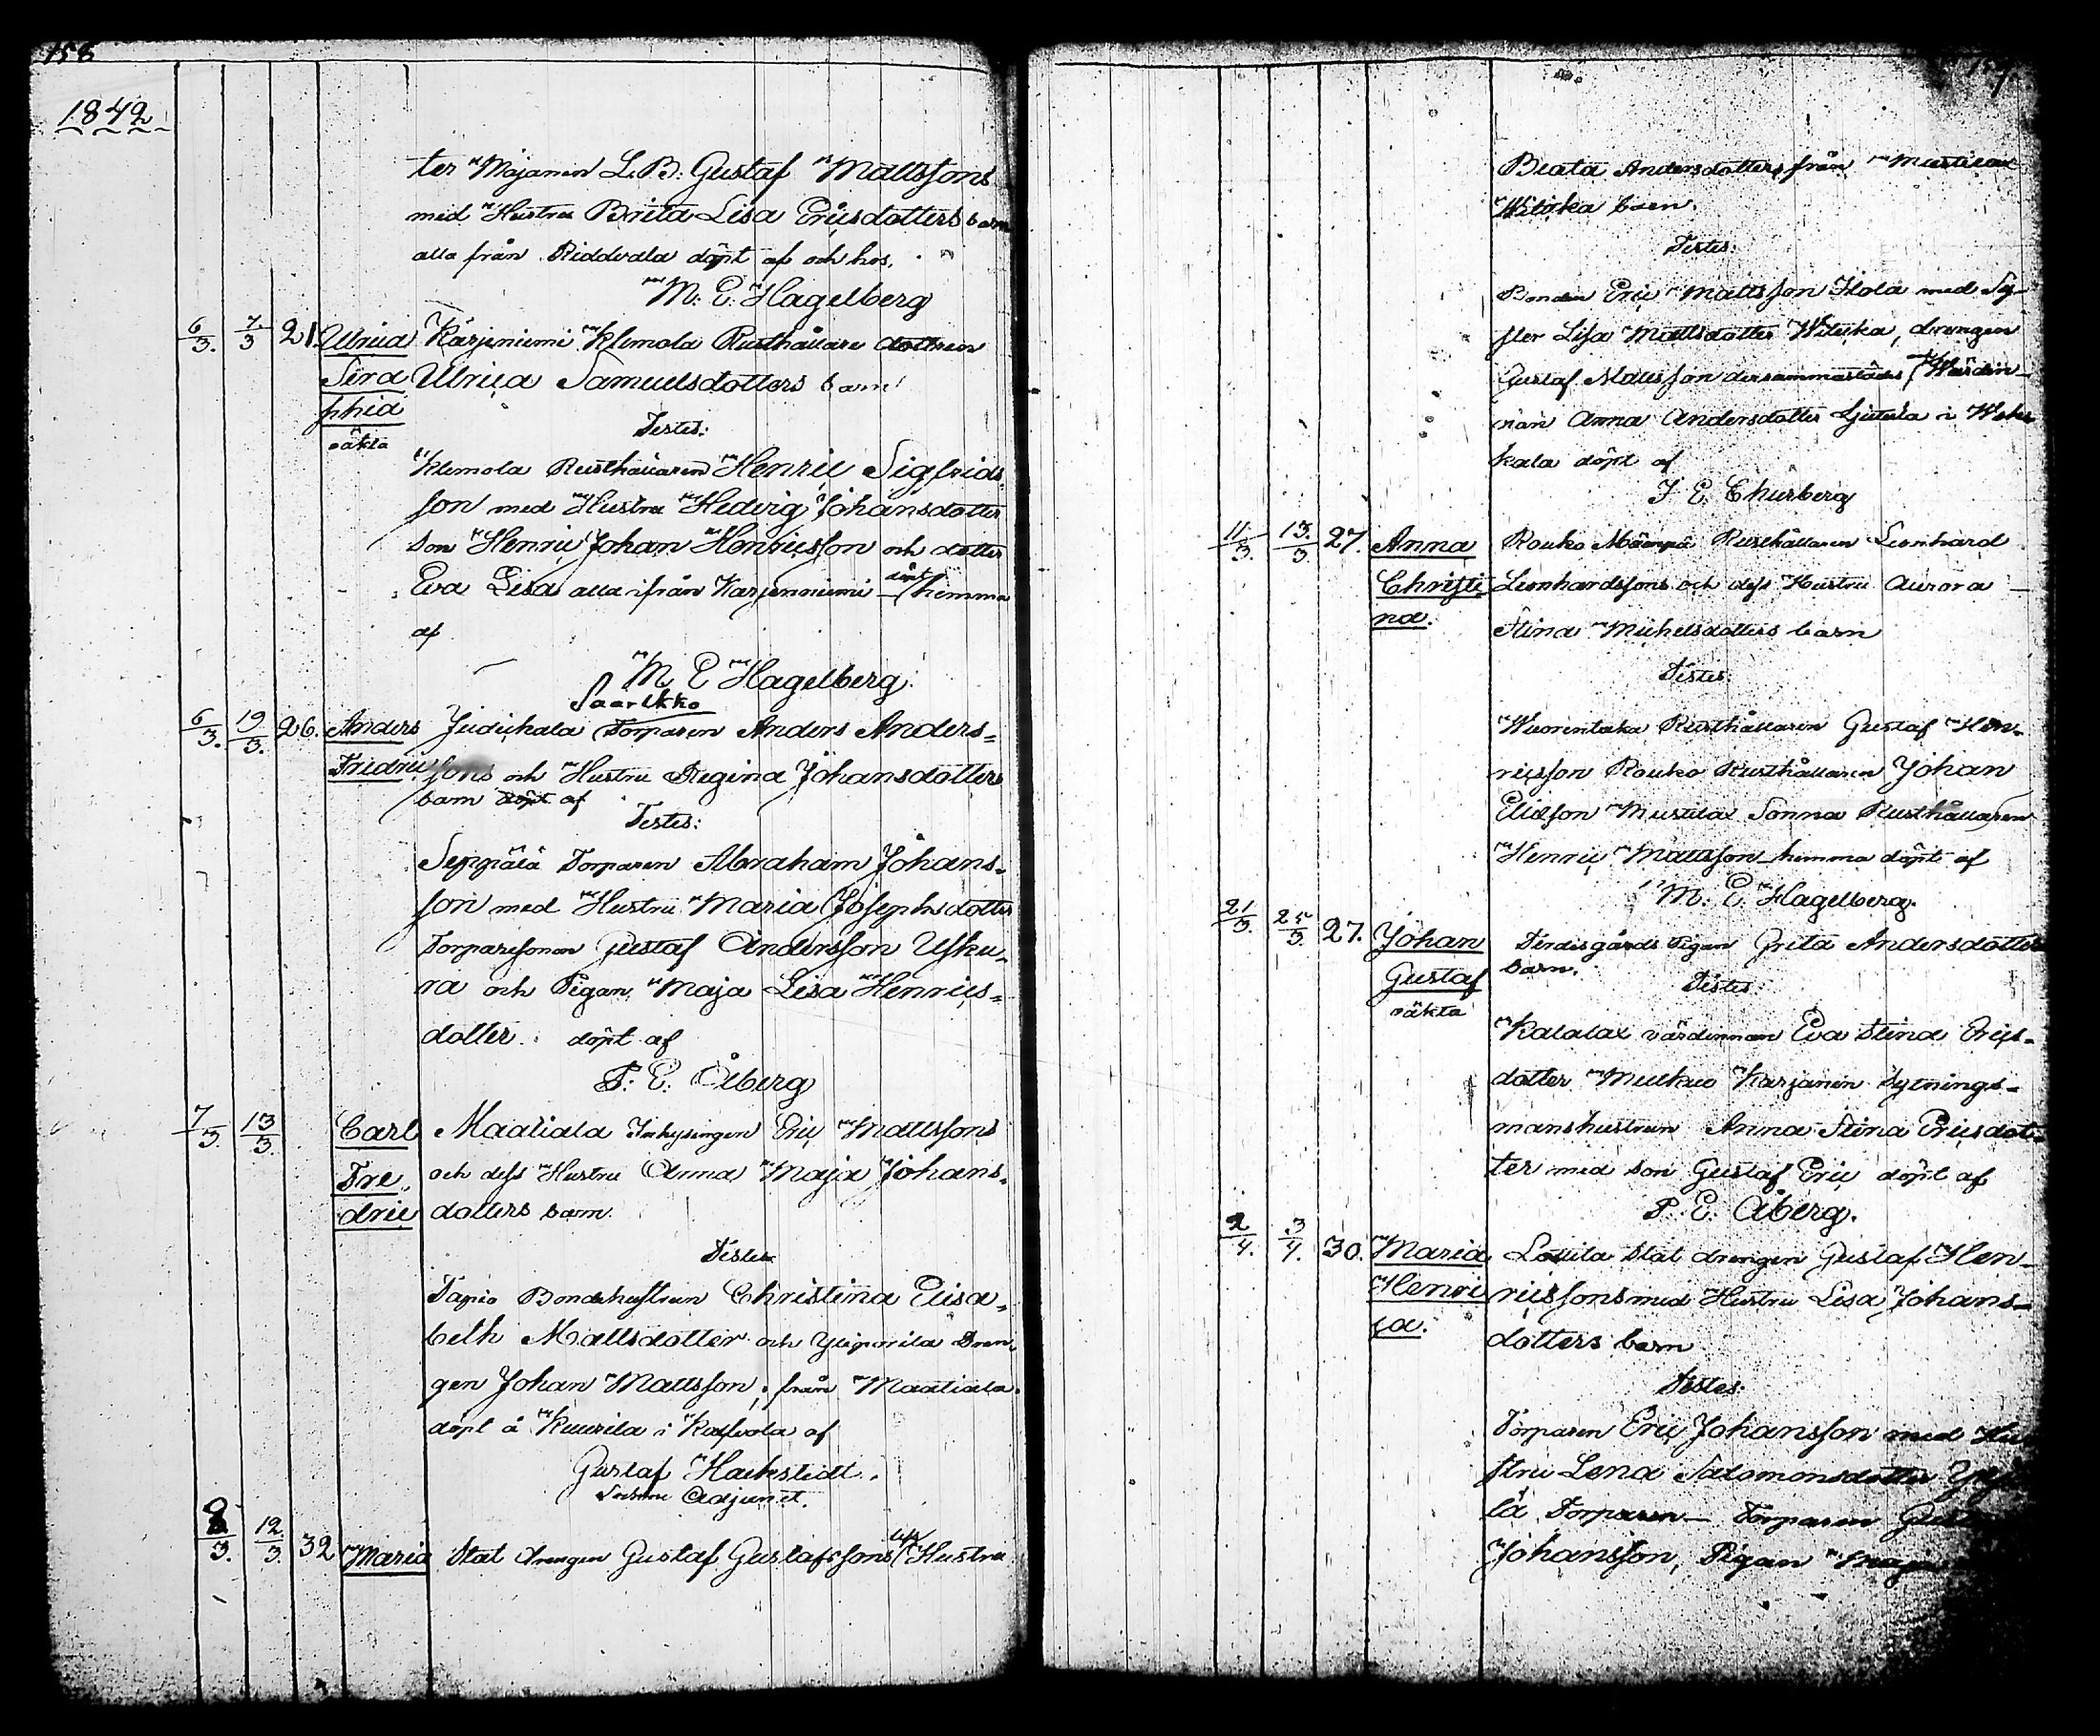 158
1842
ter Majanen L.B. Gustaf Mattssons
med Hustru Brita Lisa Ericsdotters barn
alla från Riddvala döpt af och hos.
M. E. Hagelberg
6/3. 7/3 21. Ulrica Karjeniemi Klemola Rusthållare dottren
Sera Ulrica Samuelsdotters barn
phia
oäkta
Testes:
Klemola Rusthållaren Henric Sigfrids
son med Hustru Hedvig Johansdotter
Son Henric Johan Henricsson och dotter
Eva Lisa alla ifrån Karjenniemi döpt hemma
af
M E Hagelberg.
Saarikko
6/3. 19/3. 26. Anders Judichala Torparen Anders Anders=
Fridric sons och Hustru Regina Johansdotters
barn döpt af
Testes:
Seppälä Torparen Abraham Johans-
son med Hustru Maria Josephsdotter
Torparesonen Gustaf Andersson Usku-
ra och Pigan Maja Lisa Henrics=
dotter. döpt af
F. E. Åberg
7/3. 13/3. Carl Maatiala Inhysingen Eric Mattssons
Fre- och dess Hustru Anna Maja Johans-
dric dotters barn.
Testes
Tapio Bondehustrun Christina Elisa-
beth Mattsdotter och Dren-
gen Johan Mattsson, från Maatiala.
döpt å Kuurila i Kalvola af
Gustaf Hackstedt.
Adjunct.
8/3. 12/3. 32 Maria Stat drengen Gustaf Gustafssons Hustru
Beata Andersdotters från Mustila
Witika barn.
Testes:
Bonden Eric Mattsson Hola med Sy-
ster Lisa Mattsdotter Witika, drengen
Gustaf Mattsson dersammastädes Wärdin-
nan Anna Andersdotter i
kala döpt af
F E Churberg
11/3. 13/3. 27. Anna Rouko Mäenpä Rusthållaren Leonhard
Christi Leonhardssons och dess Hustru Aurora
na. Stina Michelsdotters barn
Testes
Wuorentaka Rusthållaren Gustaf Hen-
ricsson Rouko Rusthållaren Johan
Eliesson Mustila Sonna Rusthållaren
Henric Mattsson hemma döpt af
M. E. Hagelberg.
21/3. 25/3. 27. Johan Prestgårds Pigan Greta Andersdotters
Gustaf barn.
oäkta
Testes
Katalax värdinnan Eva Stina Erics-
dotter Karjanen Sytnings-
manshustrun Anna Stina Ericsdot-
ter med Son Gustaf Eric döpt af
F. E. Åberg.
2/4. 3/4. 30. Maria Lottila Stat drengen Gustaf Hen-
Henri ricssons med Hustru Lisa Johans-
ca. dotters barn
Testes:
Torparen Eric Johansson med Hu
stru Lena Salomonsdotter
lä Torparen Torparen
Johansson, Pigan